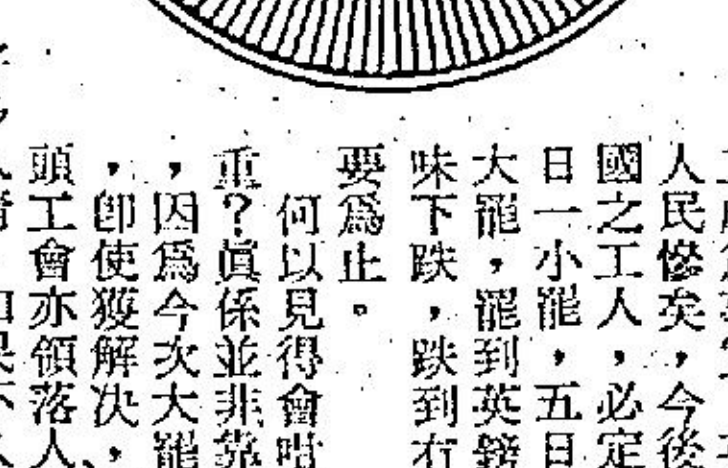 人民慘矣，今後
國之工人，必定
日一小罷，五日
大罷，罷到英鎊
味下跌，跌到冇
要爲止。
何以見得會咁
重？眞係並非靠
，因爲今次大罷
，即使獲解决，
頭工會亦領落人